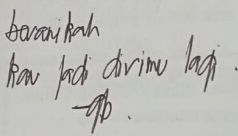 beranikah
kau jadi dirimu lagi.
-gb.